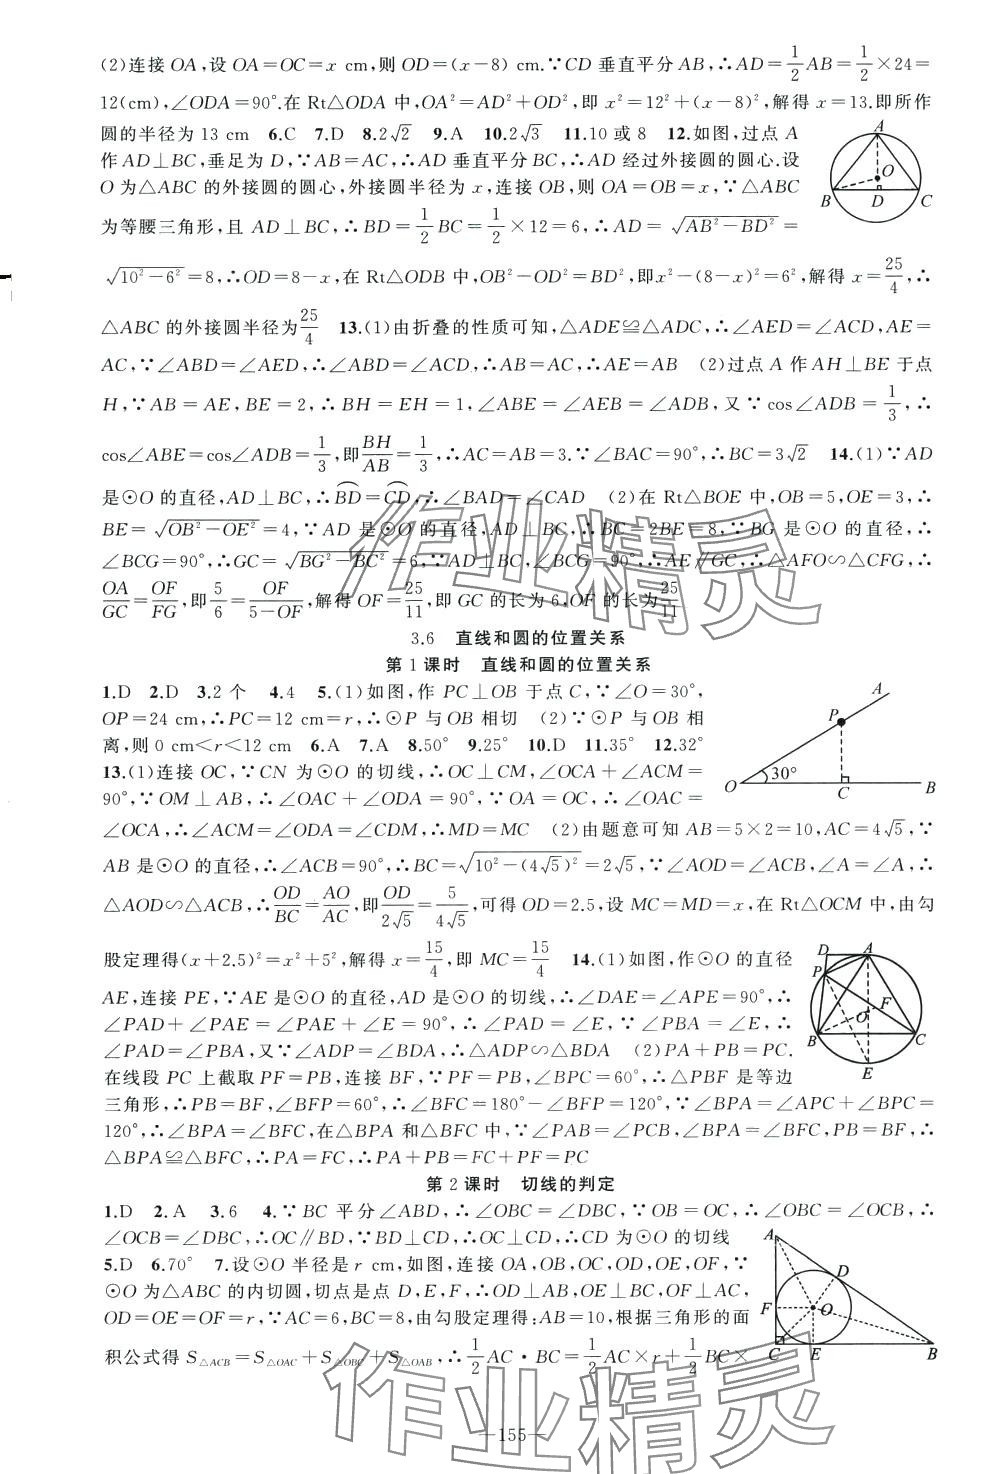 (2)连接 OA,设 OA=OC=x cm,则 OD=(x-8) cm.∵CD 垂直平分 AB,∴AD=1/2AB=1/2×24=
12(cm),∠ODA=90°.在 Rt△ODA 中,OA²=AD²+OD²,即 x²=12²+(x-8)²,解得 x=13.即所作
圆的半径为 13 cm 6.C 7.D 8.2√2 9.A 10.2√3 11.10 或 8 12.如图,过点 A
作 AD⊥BC,垂足为 D,∵AB=AC,∴AD 垂直平分 BC,∴AD 经过外接圆的圆心.设
O 为△ABC 的外接圆的圆心,外接圆半径为 x,连接 OB,则 OA=OB=x,∵△ABC
为等腰三角形,且 AD⊥BC,∴BD=1/2BC=1/2×12=6,∴AD=√(AB²-BD²)=
√(10²-6²)=8,∴OD=8-x,在 Rt△ODB 中,OB²-OD²=BD²,即x²-(8-x)²=6²,解得 x=25/4,∴
△ABC 的外接圆半径为25/4 13.(1)由折叠的性质可知,△ADE≌△ADC,∴∠AED=∠ACD,AE=
AC,∵∠ABD=∠AED,∴∠ABD=∠ACD,∴AB=AC,∴AE=AB (2)过点 A 作 AH⊥BE 于点
H,∵AB=AE,BE=2,∴BH=EH=1,∠ABE=∠AEB=∠ADB,又∵cos∠ADB=1/3,∴
cos∠ABE=cos∠ADB=1/3,即BH/AB=1/3,∴AC=AB=3.∵∠BAC=90°,∴BC=3√2 14.(1)∵AD
是⊙O 的直径,AD⊥BC,∴BD=CD,∴∠BAD=∠CAD (2)在 Rt△BOE 中,OB=5,OE=3,∴
BE=√(OB²-OE²)=4,∵AD 是⊙O 的直径,AD⊥BC,∴BC=2BE=8,∵BG 是⊙O 的直径,∴
∠BCG=90°,∴GC=√(BG²-BC²)=6,∵AD⊥BC,∠BCG=90°,∴AE∥GC,∴△AFO∽△CFG,∴
OA/GC=OF/FG,即5/6=OF/(5-OF),解得 OF=25/11,即 GC 的长为 6,OF 的长为25/11
3.6 直线和圆的位置关系
第 1 课时 直线和圆的位置关系
1.D 2.D 3.2 个 4.4 5.(1)如图,作 PC⊥OB 于点 C,∵∠O=30°,
OP=24 cm,∴PC=12 cm=r,∴⊙P 与OB 相切 (2)∵⊙P 与 OB 相
离,则 0 cm<r<12 cm 6.A 7.A 8.50° 9.25° 10.D 11.35° 12.32°
13.(1)连接 OC,∵CN 为⊙O 的切线,∴OC⊥CM,∠OCA+∠ACM=
90°,∵OM⊥AB,∴∠OAC+∠ODA=90°,∵OA=OC,∴∠OAC=
∠OCA,∴∠ACM=∠ODA=∠CDM,∴MD=MC (2)由题意可知 AB=5×2=10,AC=4√5,∵
AB 是⊙O 的直径,∴∠ACB=90°,∴BC=√(10²-(4√5)²)=2√5,∵∠AOD=∠ACB,∠A=∠A,∴
△AOD∽△ACB,∴OD/BC=AO/AC,即OD/2√5=5/4√5,可得 OD=2.5,设 MC=MD=x,在 Rt△OCM 中,由勾
股定理得(x+2.5)²=x²+5²,解得 x=15/4,即 MC=15/4 14.(1)如图,作⊙O 的直径
AE,连接 PE,∵AE 是⊙O 的直径,AD 是⊙O 的切线,∴∠DAE=∠APE=90°,∴
∠PAD+∠PAE=∠PAE+∠E=90°,∴∠PAD=∠E,∵∠PBA=∠E,∴
∠PAD=∠PBA,又∵∠ADP=∠BDA,∴△ADP∽△BDA (2)PA+PB=PC.
在线段 PC 上截取 PF=PB,连接 BF,∵PF=PB,∠BPC=60°,∴△PBF 是等边
三角形,∴PB=BF,∠BFP=60°,∴∠BFC=180°-∠BFP=120°,∵∠BPA=∠APC+∠BPC=
120°,∴∠BPA=∠BFC,在△BPA 和△BFC 中,∵∠PAB=∠PCB,∠BPA=∠BFC,PB=BF,∴
△BPA≌△BFC,∴PA=FC,∴PA+PB=FC+PF=PC
第 2 课时 切线的判定
1.D 2.A 3.6 4.∵BC 平分∠ABD,∴∠OBC=∠DBC,∵OB=OC,∴∠OBC=∠OCB,∴
∠OCB=∠DBC,∴OC∥BD,∵BD⊥CD,∴OC⊥CD,∴CD 为⊙O 的切线
5.D 6.70° 7.设⊙O 半径是 r cm,如图,连接 OA,OB,OC,OD,OE,OF,∵
⊙O 为△ABC 的内切圆,切点是点 D,E,F,∴OD⊥AB,OE⊥BC,OF⊥AC,
OD=OE=OF=r,∵AC=6,BC=8,由勾股定理得:AB=10,根据三角形的面
积公式得 S△ACB=S△OAC+S△OBC+S△OAB,∴1/2AC·BC=1/2AC×r+1/2BC×
—155—
A
O
B D C
A
P
30°
O C B
D A
P
F
O
B C
E
A
D
F O
C E B
作业精灵
作业精灵